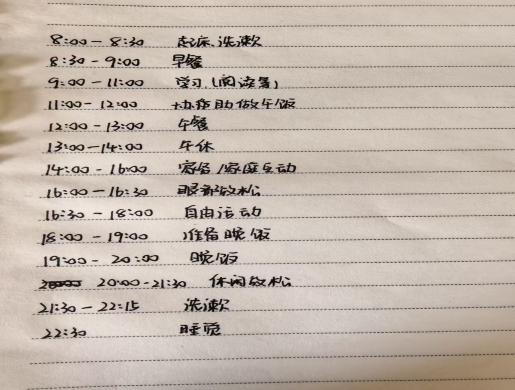 8:00 - 8:30 起床、洗漱
8:30 - 9:00 早餐
9:00 - 11:00 学习(阅读等)
11:00 - 12:00 协帮助做午饭
12:00 - 13:00 午餐
13:00 - 14:00 午休
14:00 - 16:00 家务/家庭互动
16:00 - 16:30 眼部放松
16:30 - 18:00 自由运动
18:00 - 19:00 准备晚饭
19:00 - 20:00 晚饭
20:00 - 21:30 休闲放松
21:30 - 22:15 洗漱
22:30 睡觉